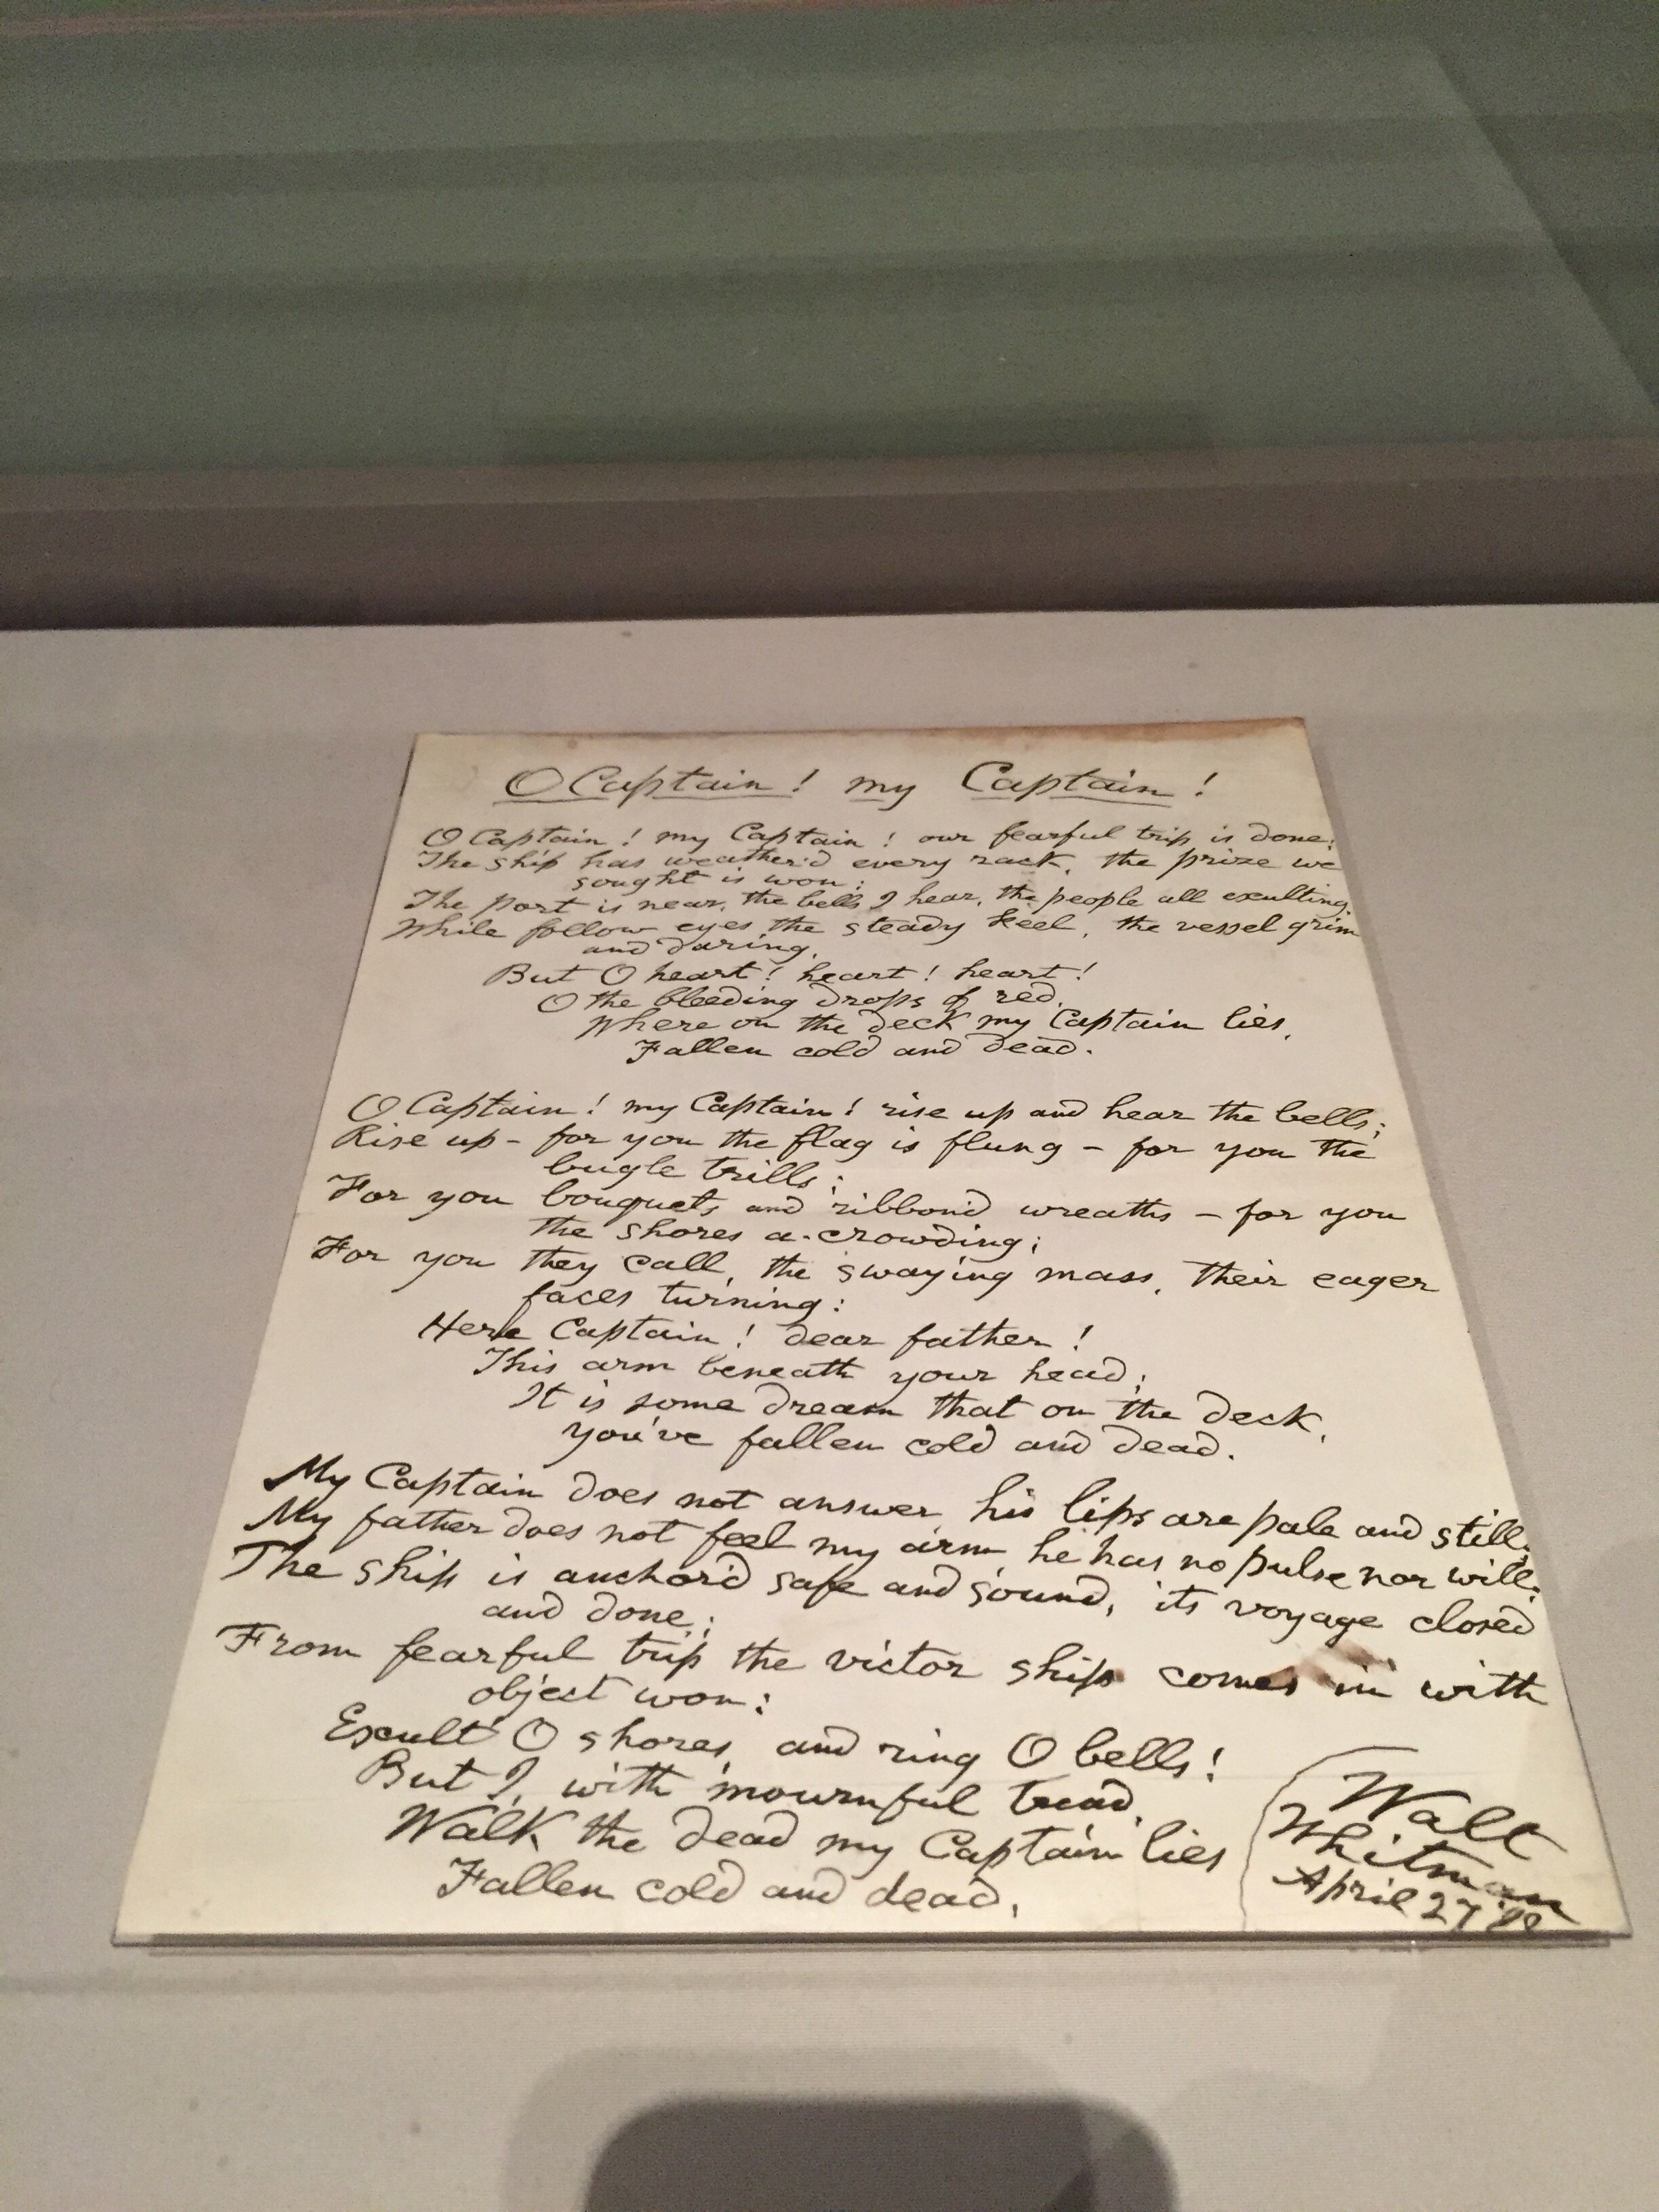 O Captain! my Captain!
O Captain! my Captain! our fearful trip is done;
The ship has weather'd every rack, the prize we
sought is won;
The port is near, the bells I hear, the people all exulting,
While follow eyes the steady keel, the vessel grim
and daring.
But O heart! heart! heart!
O the bleeding drops of red,
Where on the deck my Captain lies,
Fallen cold and dead.
O Captain! my Captain! rise up and hear the bells;
Rise up – for you the flag is flung – for you the
bugle trills;
For you bouquets and ribbon'd wreaths – for you
the shores a-crowding;
For you they call, the swaying mass, their eager
faces turning:
Here Captain! dear father!
This arm beneath your head;
It is some dream that on the deck,
you've fallen cold and dead.
My Captain does not answer, his lips are pale and still;
My father does not feel my arm, he has no pulse nor will;
The ship is anchor'd safe and sound, its voyage closed
and done;
From fearful trip the victor ship comes in with
object won:
Exult O shores, and ring O bells!
But I, with mournful tread,
Walk the dead my Captain lies
Fallen cold and dead.
Walt
Whitman
April 27